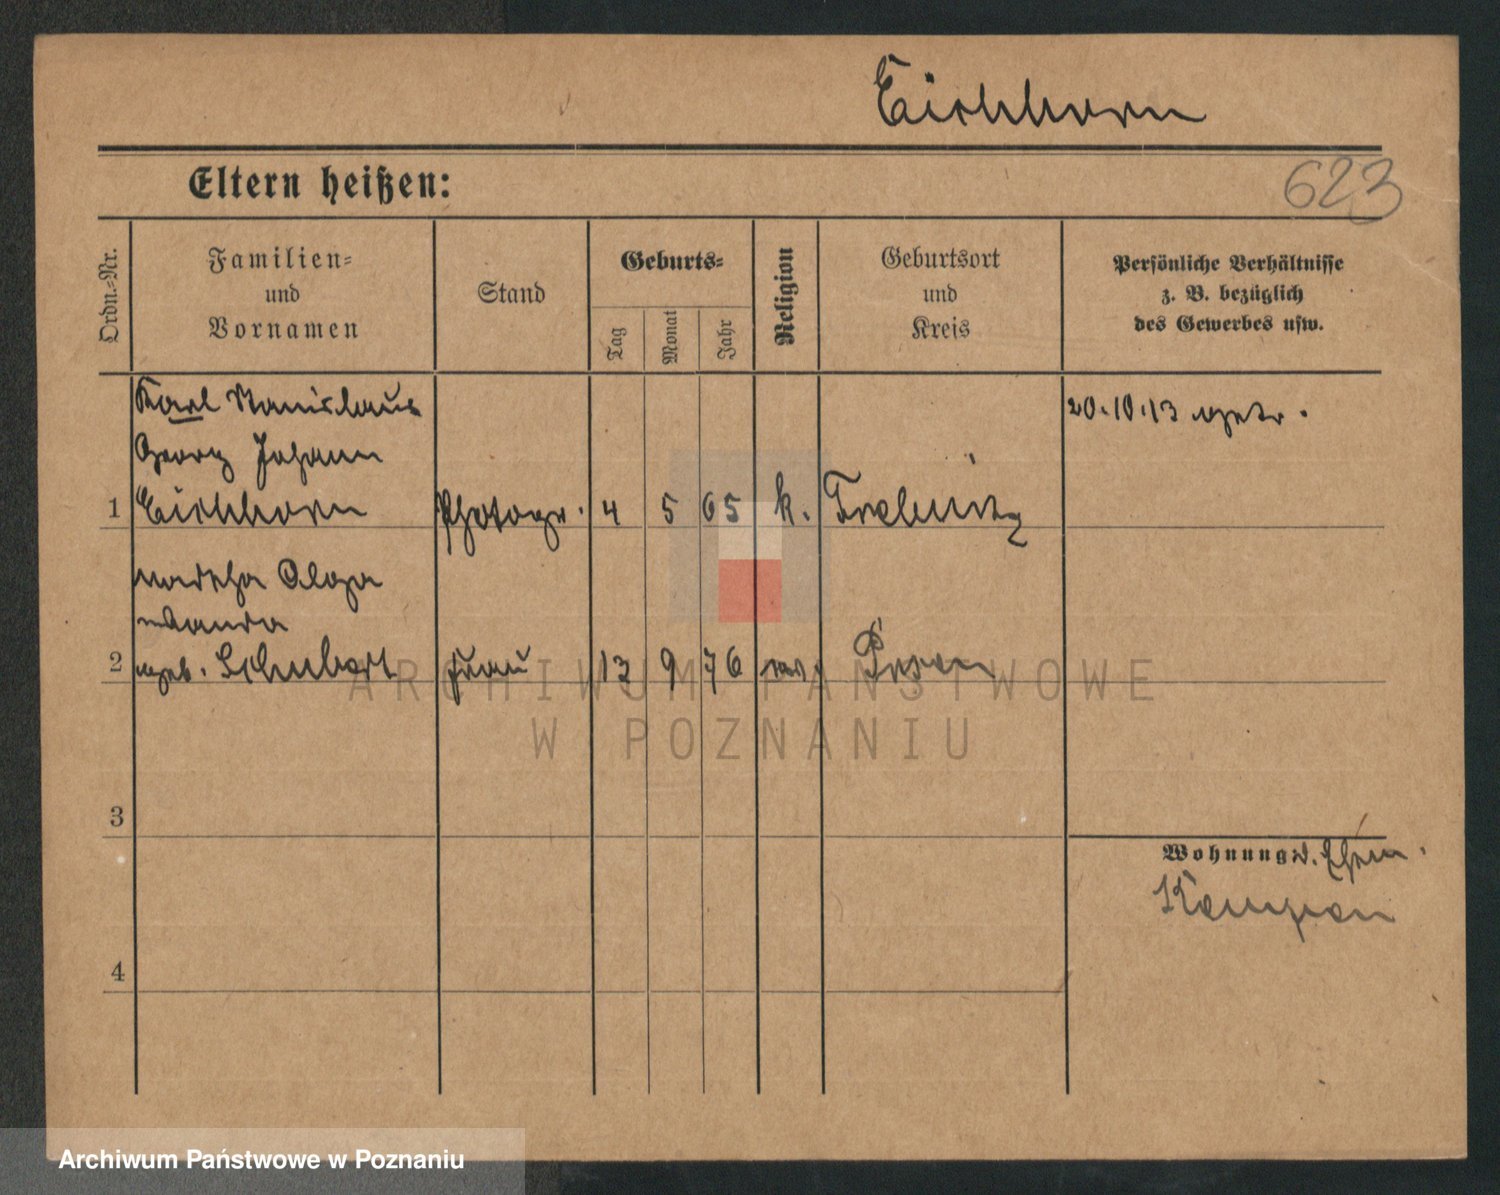 Eichhorn
Eltern heißen:
623
Ordn.-Nr.
Familien-
und
Vornamen
Stand
Geburts-
Tag
Monat
Jahr
Religion
Geburtsort
und
Kreis
Persönliche Verhältnisse
z. B. bezüglich
des Gewerbes usw.
Karl Stanislaus
Georg Johann
1 Eichhorn Photogr. 4 5 65 k. Trebnitz
20.10.13 getr.
Martha Olga
Wanda
2 geb. Schubert Frau 13 9 76 ev. Posen
ARCHIWUM PAŃSTWOWE
W POZNANIU
3
Wohnung d. Ehem.
4
Archiwum Państwowe w Poznaniu